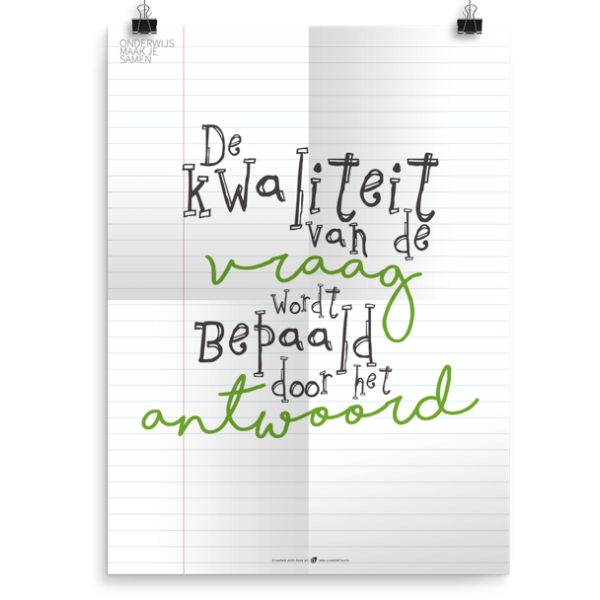 ONDERWIJS
MAAK JE
SAMEN
De
kwaliteit
van de
vraag
wordt
Bepaald
door het
antwoord